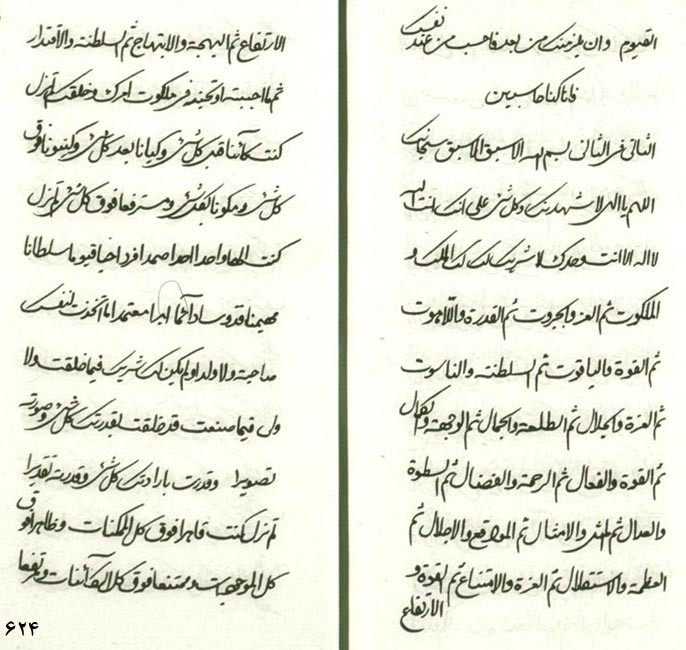 القیوم وان یعزمنک من بعد فاحسب من عند نفسک
فانا کنا حاسبین
الثانی فی الثانی بسم الله الاسبق الاسبق سبحانک
اللهم یا الهی لاشهدنک وکل شئ علی انک انت الله
لا اله الا انت وحدک لا شریک لک لک الملک و
الملکوت ثم العز والجبروت ثم القدرة واللاهوت
ثم القوة والیاقوت ثم السلطنة والناسوت
ثم العزة والجلال ثم الطلعة والجمال ثم الوجهة والکمال
ثم القوة والفعال ثم الرحمة والفضال ثم السطوة
والعدال ثم المثل والامثال ثم المواقع والاجلال ثم
العظمة والاستقلال ثم العزة والامتناع ثم القوة و
الارتفاع
الارتفاع ثم البهجة والابتهاج ثم السلطنة والاقتدار
ثم ما احببته او تحبنه فی ملکوت امرک وخلقک لم تزل
کنت کائنا قبل کل شئ وکیانا بعد کل شئ وکینونا فوق
کل شئ ومکونا لکل شئ ومسترفعا فوق کل شئ لم تزل
کنت الها واحدا احدا صمدا فردا حیا قیوما سلطانا
مهیمنا قدوسا دائما ابدا معتمدا ما اتخذت لنفسک
صاحبة ولا ولدا ولم یکن لک شریک فیما خلقت ولا
ولی فیما صنعت قد خلقت بقدرتک کل شئ وصورته
تصویرا وقدرت بارادتک کل شئ وقدرته تقدیرا
لم تزل کنت قاهرا فوق کل الممکنات وظاهرا فوق
کل الموجودات وممتنعا فوق کل الکائنات ومرتفعا
۶۲۴